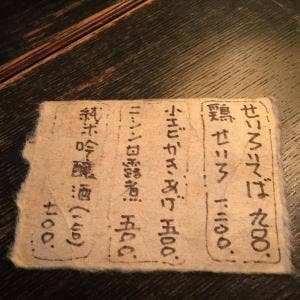 せいろそば 九〇〇.
鶏せいろ 一二〇〇.
小エビかきあげ 五〇〇.
ニシン甘露煮 五〇〇.
純米吟醸酒(一合) 七〇〇.